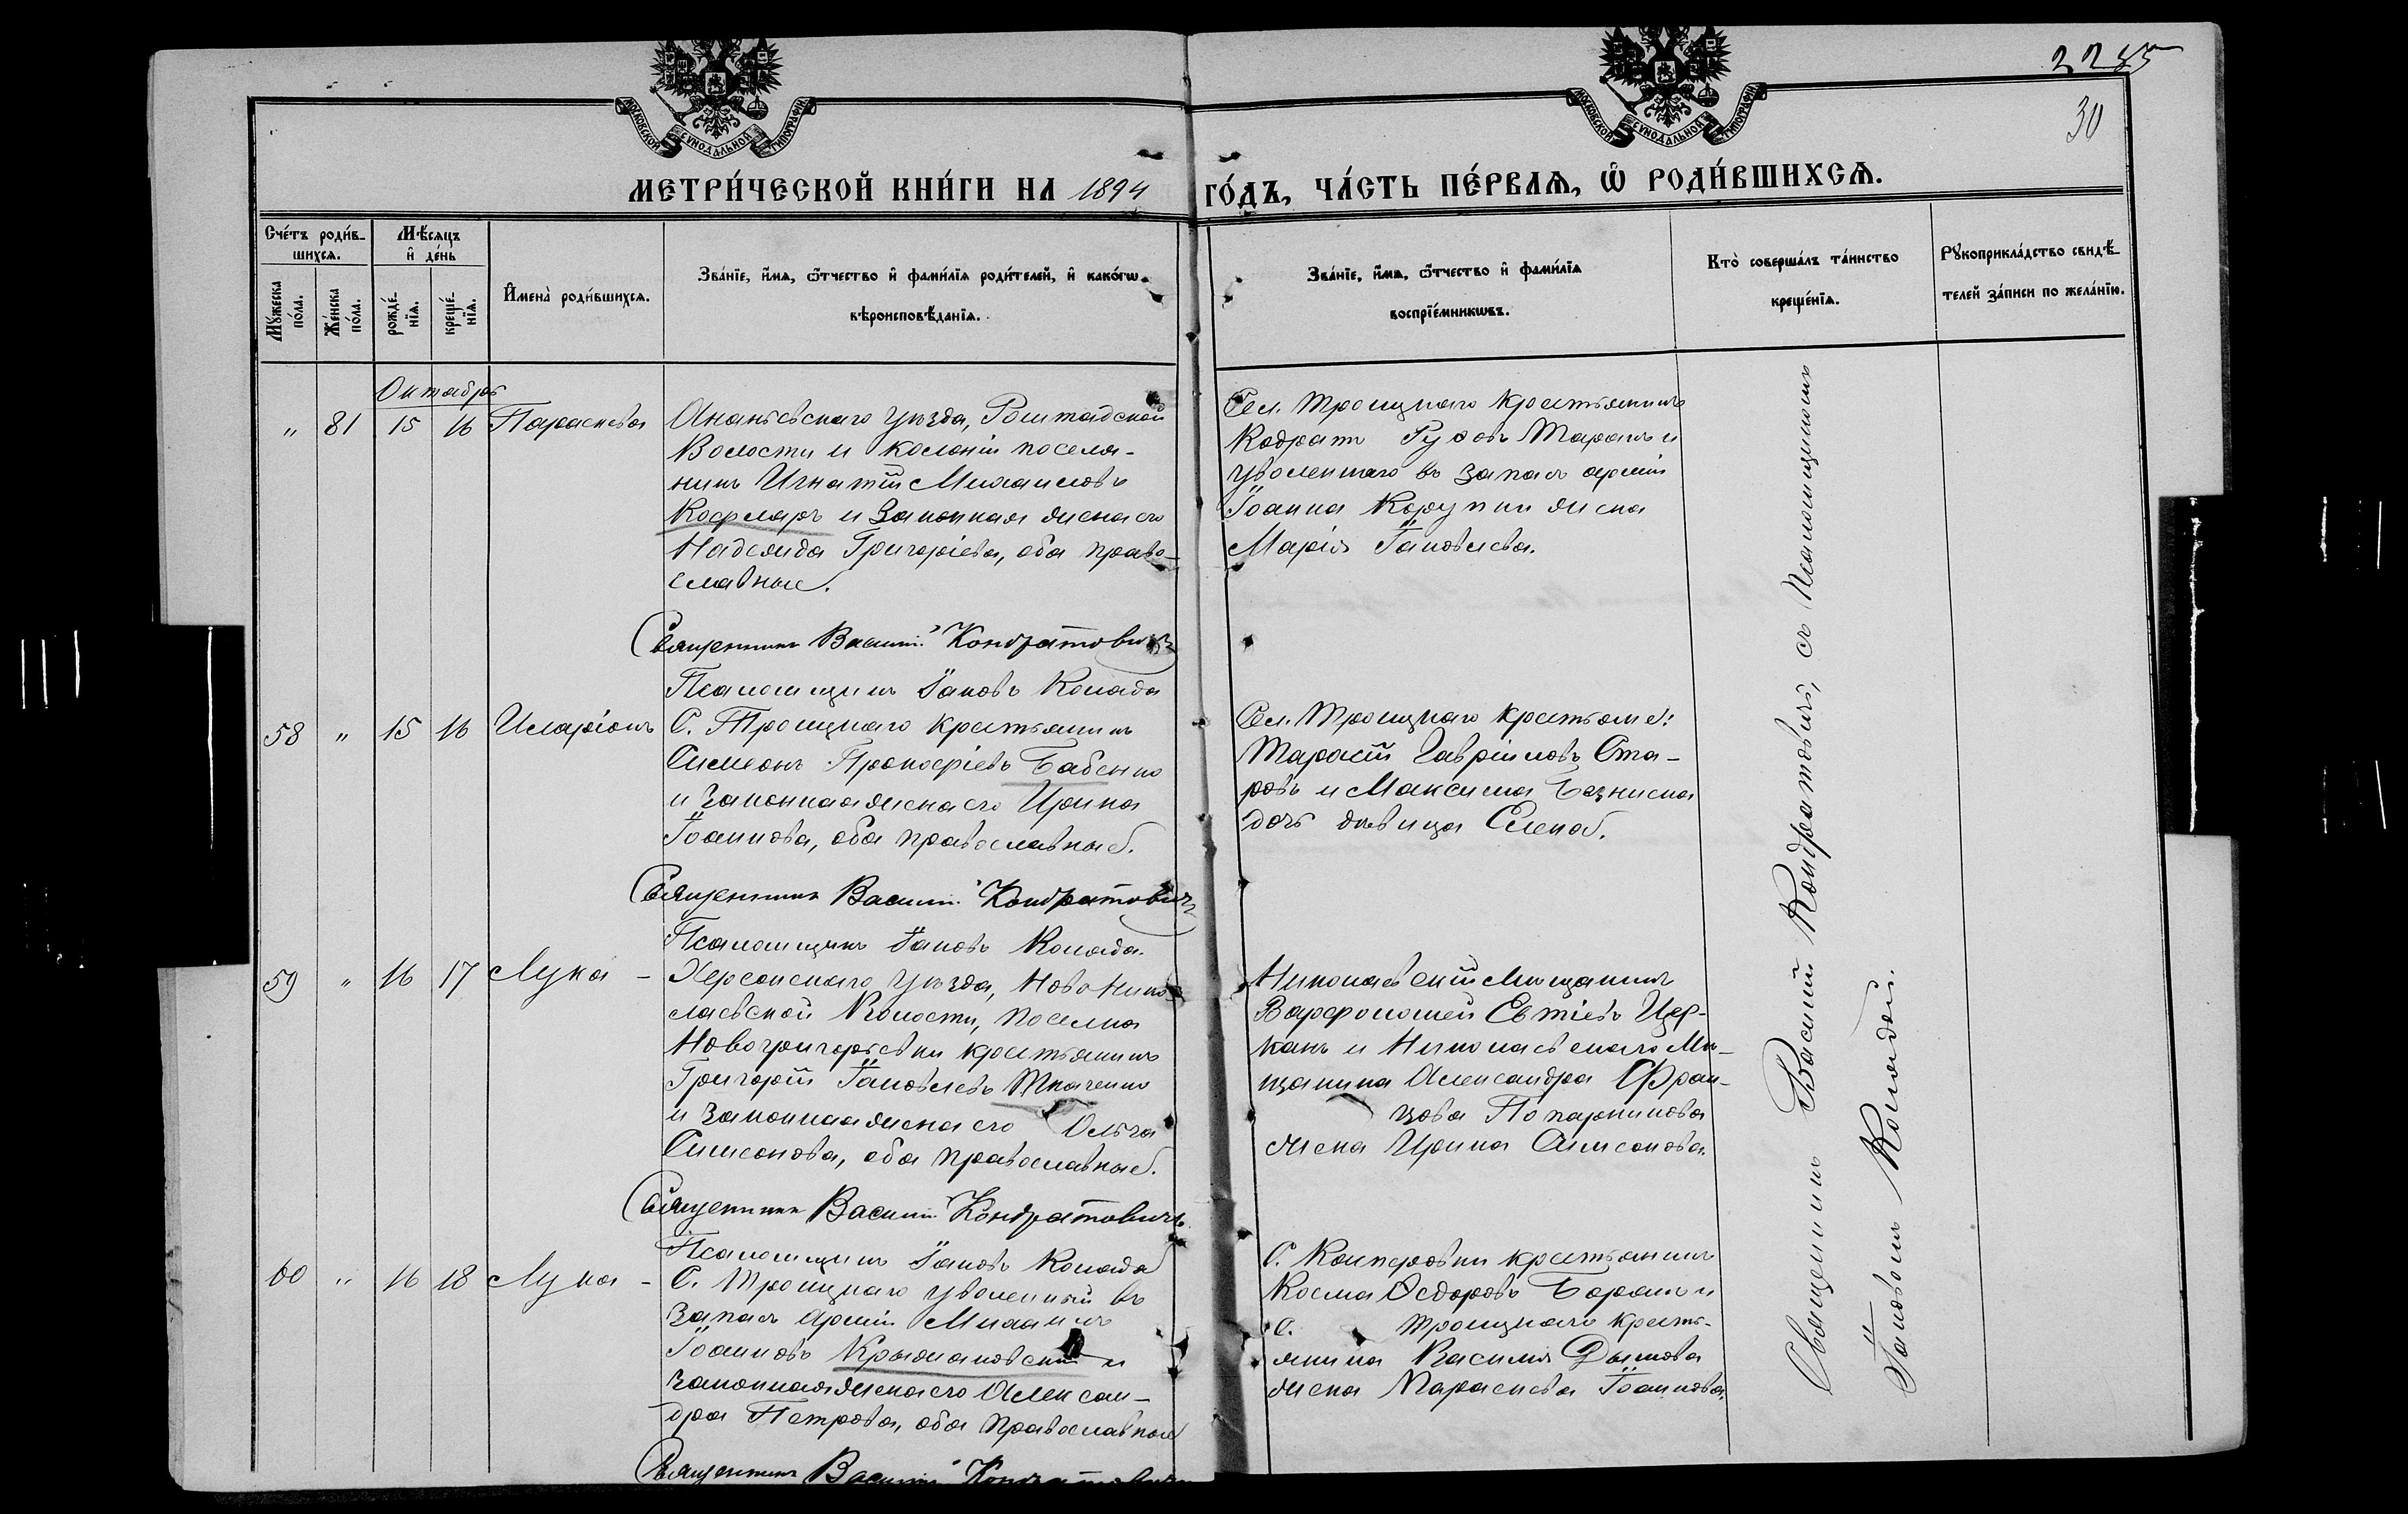 2285
30
МОСКОВСКОЙ СѴНОДАЛЬНОЙ ТИПОГРАФІИ
МОСКОВСКОЙ СѴНОДАЛЬНОЙ ТИПОГРАФІИ
МЕТРИ́ЧЕСКОЙ КНИ́ГИ НА 1894 ГО́ДЪ, ЧА́СТЬ ПЕ́РВАѦ, Ѽ РОДИ́ВШИХСѦ.
Сче́тъ роди́в-
шихсѧ.
Му́жеска по́ла.
Же́нска по́ла.
Мѣ́сѧцъ
и҆ де́нь
рожде́-
нїѧ.
креще́-
нїѧ.
И҆мена̀ роди́вшихсѧ.
Зва́нїе, и҆́мѧ, ѻ҆́тчество и҆ фами́лїѧ роди́телей, и҆ како́гѡ
вѣроисповѣ́данїѧ.
Зва́нїе, и҆́мѧ, ѻ҆́тчество и҆ фами́лїѧ
воспрїе́мникѡвъ.
Кто̀ соверша́лъ та́инство
креще́нїѧ.
Рꙋкоприкла́дство свидѣ́-
телей за́писи по жела́нїю.
Октябрь
" 81 15 16 Параскева
Ананьевскаго уѣзда, Роштадской
Волости и колоніи поселя-
нинъ Игнатій Михаиловъ
Кофларъ и законная жена его
Надежда Григоріева, оба право-
славные.
Священникъ Василій Кондратовичъ
Псаломщикъ Іаковъ Колада
Сел. Троицкаго крестьянинъ
Кодратъ Таранъ и
уволеннаго въ запасъ арміи
Іоанна Корупки жена
Марія Іаковлева.
58 " 15 16 Иларіонъ
С. Троицкаго крестьянинъ
Симеонъ Прокофіевъ Бабенко
и законная жена его Ирина
Іоаннова, оба православные.
Священникъ Василій Кондратовичъ
Псаломщикъ Іаковъ Колада.
Сел. Троицкаго крестьяне:
Тарасій Гавріиловъ Ста-
ровъ и Максима
дочь дѣвица Елена.
59 " 16 17 Лука -
Херсонскаго уѣзда, Ново Нико-
лаевской Волости, поселка
Новогригорьевки крестьянинъ
Григорій Іаковлевъ Ткаченко
и законная жена его Ольга
Симеонова, оба православные.
Священникъ Василій Кондратовичъ
Псаломщикъ Іаковъ Колада
Николаевскій Мѣщанинъ
Варфоломей Евтіевъ Цер-
канъ и Николаевскаго Мѣ-
щанина Александра Фран-
цова Попарникова
жена Ирина Симеонова.
60 " 16 18 Лука -
С. Троицкаго уволенный въ
запасъ Арміи Михаилъ
Іоанновъ Крыжановскій и
законная жена его Алексан-
дра Петрова, оба православные
Священникъ Василій Кондратовичъ
С. Касперовки крестьянинъ
Косма Ѳедоровъ Баранъ и
с. Троицкаго кресть-
янина Василія Дымова
жена Параскева Іоаннова.
Священникъ Василій Кондратовичъ, съ Псаломщикомъ
Іаковомъ Коладой.